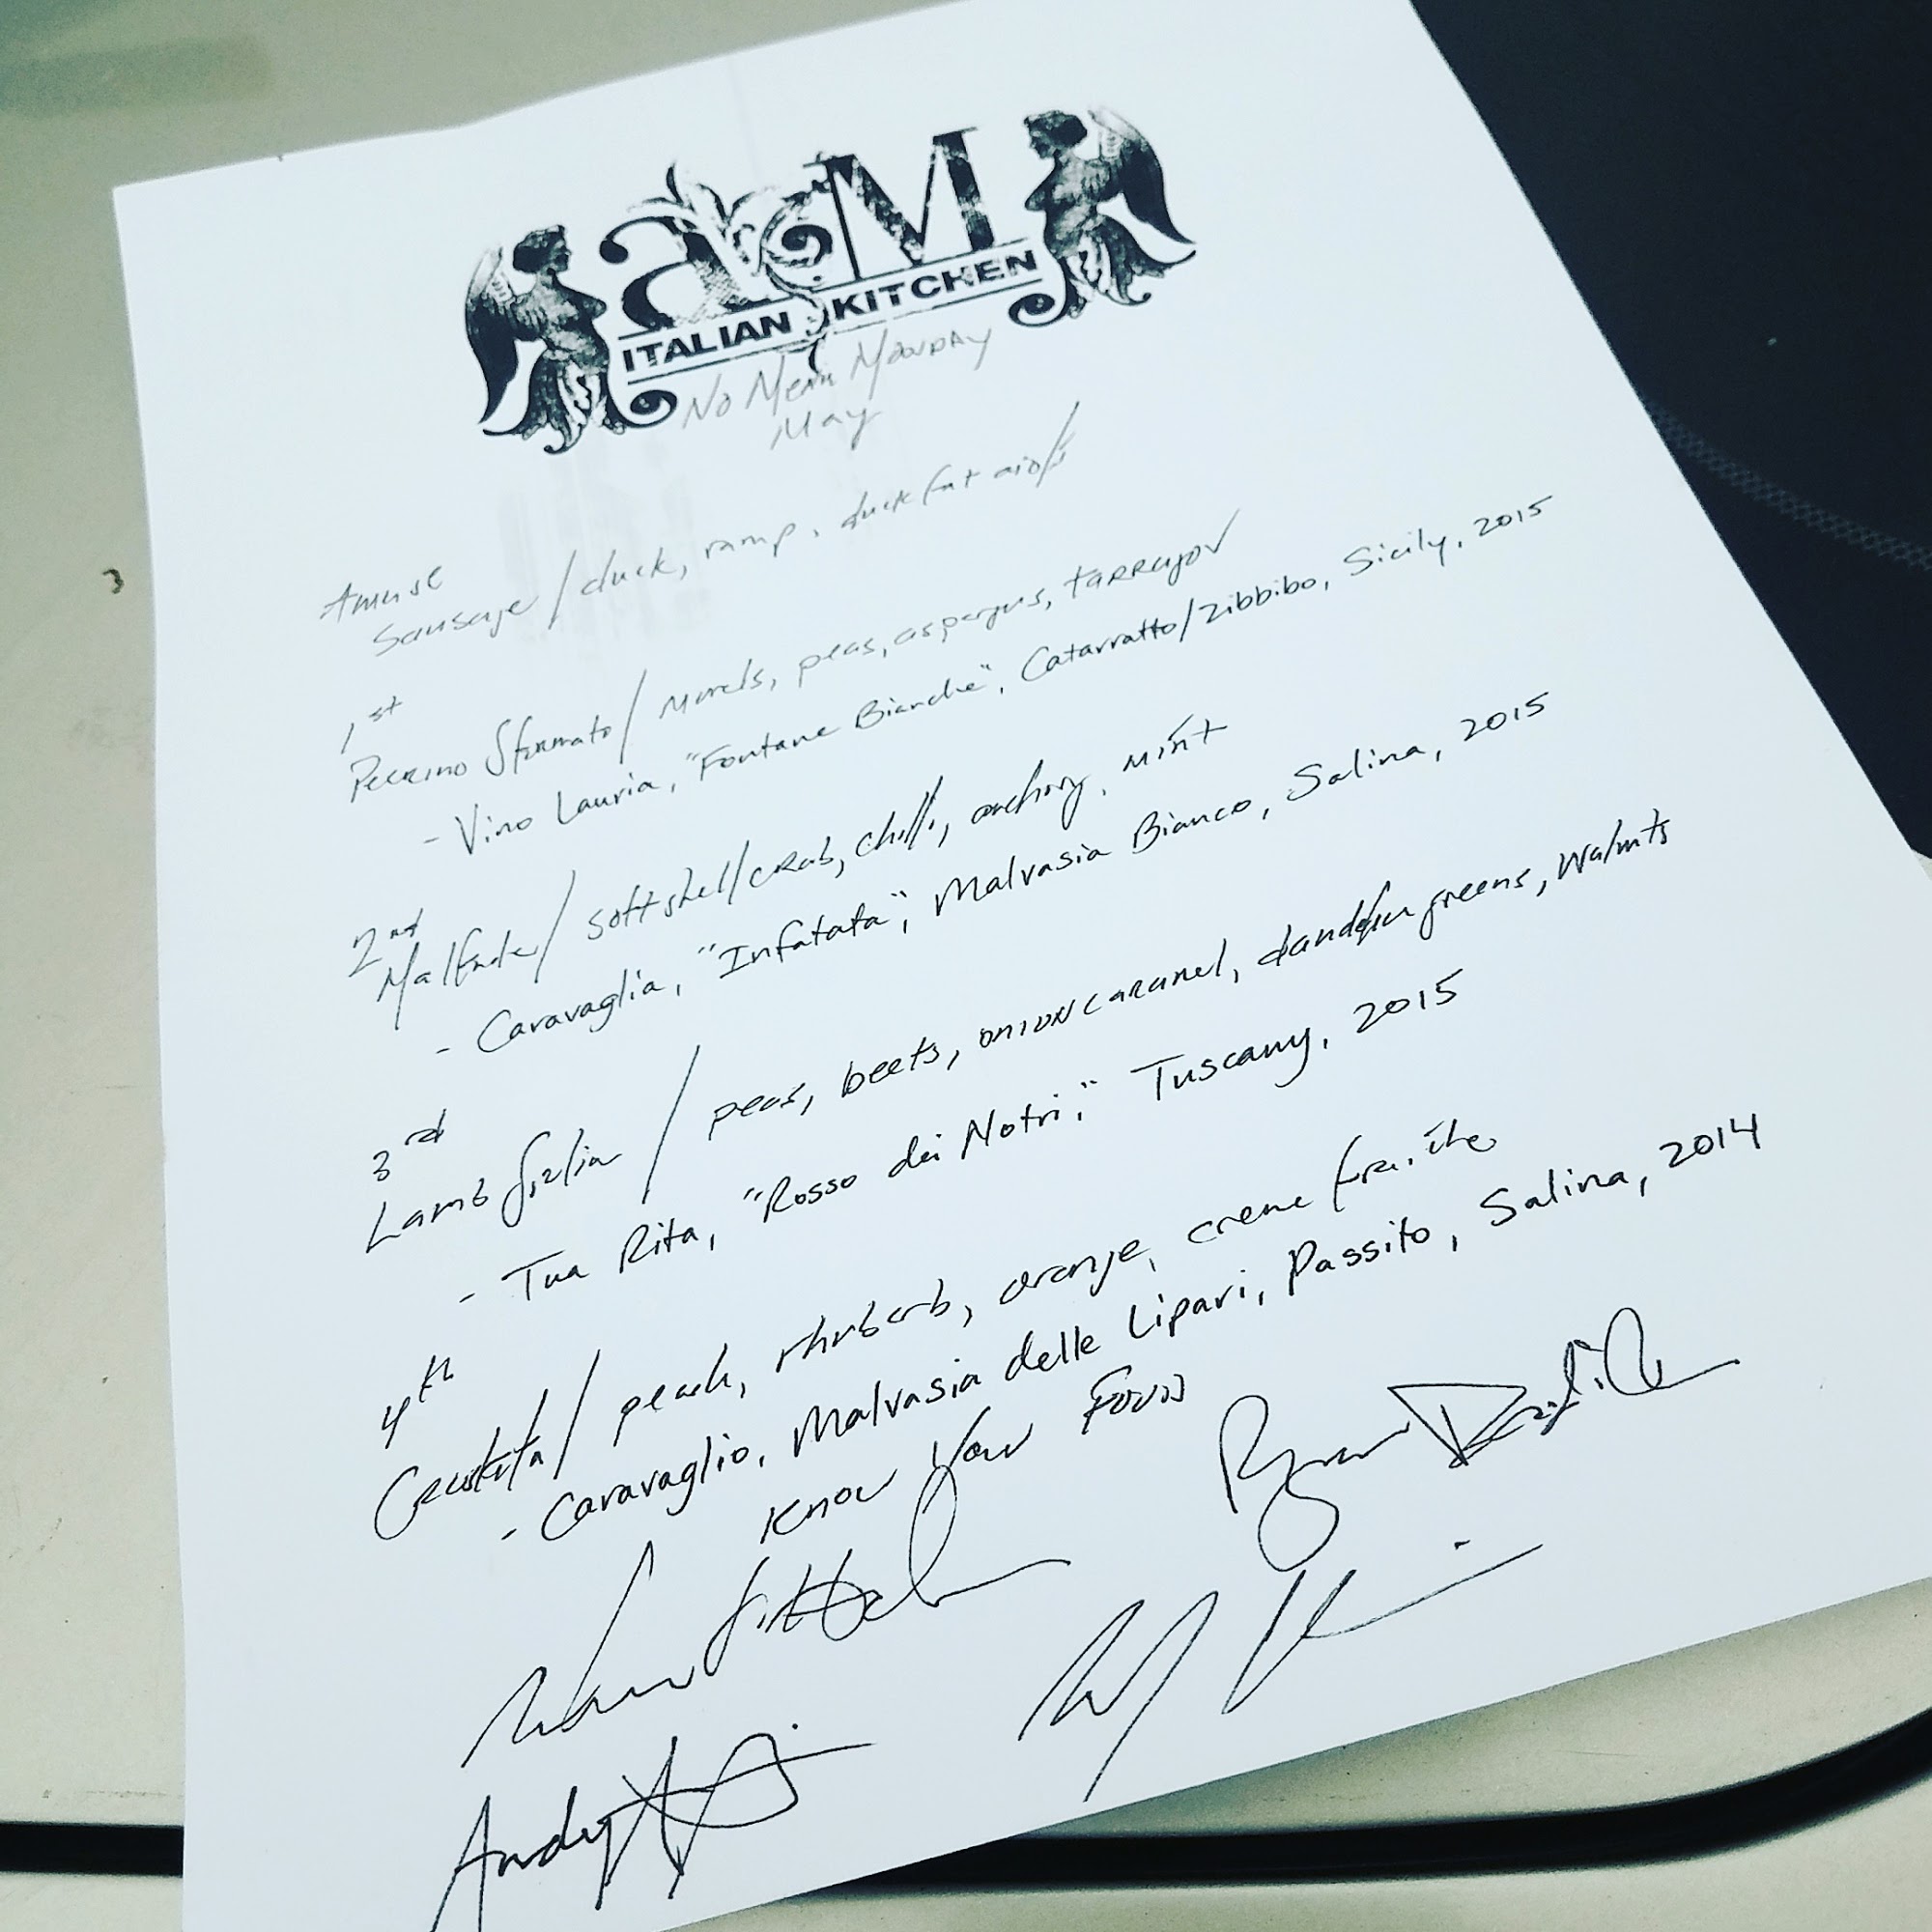 a&M
ITALIAN KITCHEN
No Menu Monday
May
Amuse
Sausage / duck, ramp, duck fat aioli
1st
Pecorino Sformato / morels, peas, aspergus, tarragon
- Vino Lauria, "Fontane Bianche", Catarratto/Zibbibo, Sicily, 2015
2nd
Malfade / softshell crab, chili, anchovy, mint
- Caravaglia, "Infatata", Malvasia Bianco, Salina, 2015
3rd
Lamb / peas, beets, onion caramel, dandelion greens, walnuts
- Tua Rita, "Rosso dei Notri," Tuscany, 2015
4th
Crostata / peach, rhubarb, orange, creme fraiche
- Caravaglio, Malvasia delle Lipari, Passito, Salina, 2014
Know Your Food
Andy